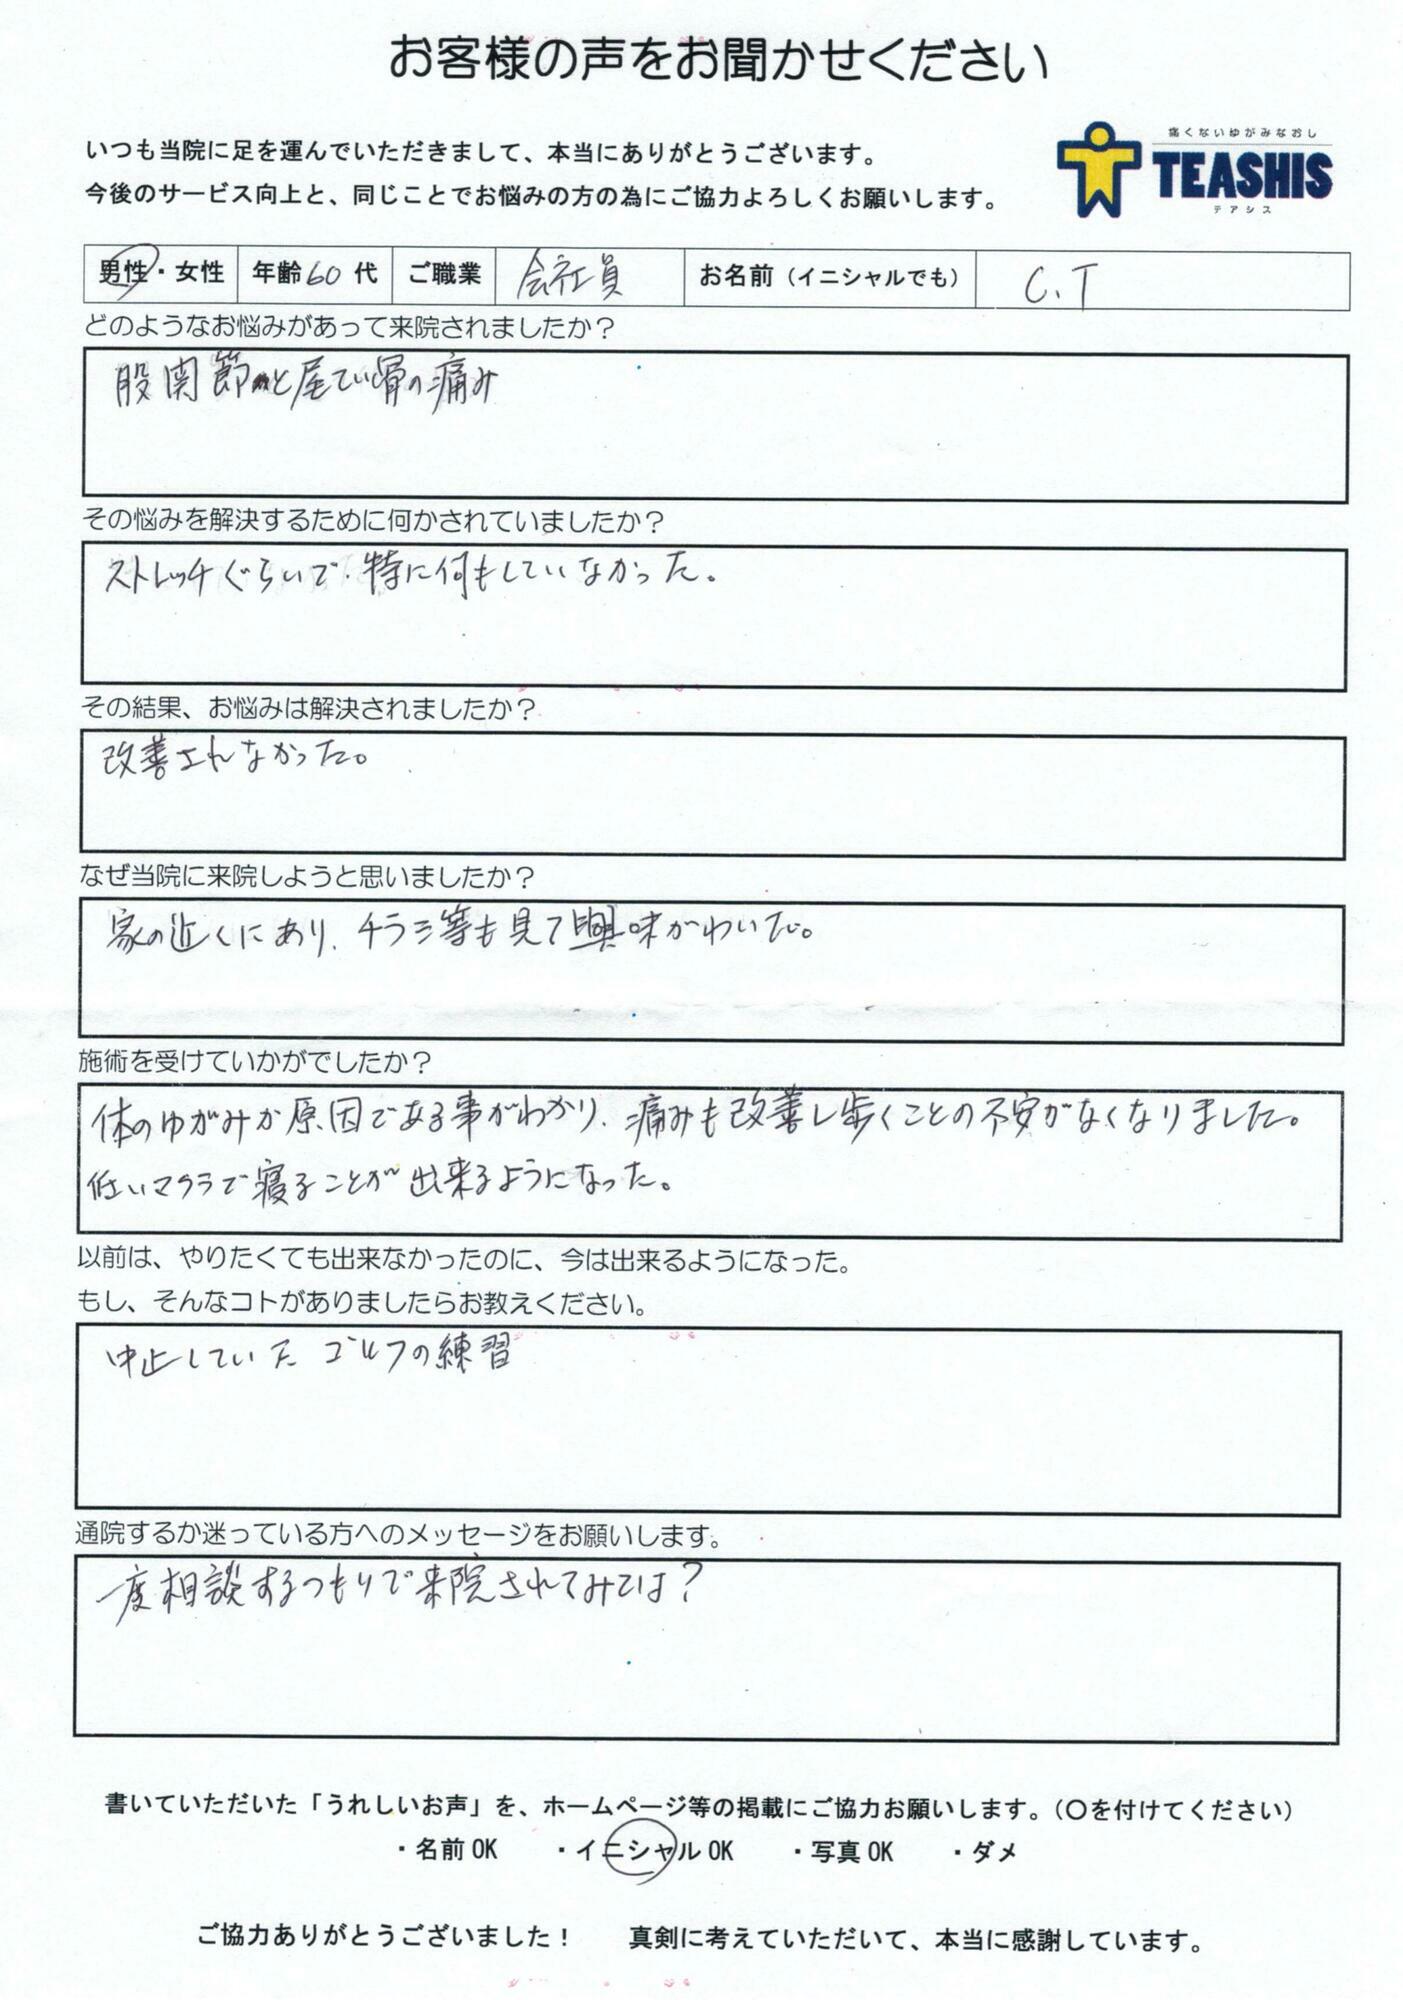 お客様の声をお聞かせください
いつも当院に足を運んでいただきまして、本当にありがとうございます。
今後のサービス向上と、同じことでお悩みの方の為にご協力よろしくお願いします。
痛くないゆがみなおし
TEASHIS
テアシス
男性・女性 年齢60代 ご職業 会社員 お名前（イニシャルでも） C.T
どのようなお悩みがあって来院されましたか？
股関節と尾てい骨の痛み
その悩みを解決するために何かされていましたか？
ストレッチぐらいで、特に何もしていなかった。
その結果、お悩みは解決されましたか？
改善されなかった。
なぜ当院に来院しようと思いましたか？
家の近くにあり、チラシ等も見て興味がわいた。
施術を受けていかがでしたか？
体のゆがみが原因である事がわかり、痛みも改善し歩くことの不安がなくなりました。
低いマクラで寝ることが出来るようになった。
以前は、やりたくても出来なかったのに、今は出来るようになった。
もし、そんなコトがありましたらお教えください。
中止していたゴルフの練習
通院するか迷っている方へのメッセージをお願いします。
一度相談するつもりで来院されてみては？
書いていただいた「うれしいお声」を、ホームページ等の掲載にご協力お願いします。（〇を付けてください）
・名前OK ・イニシャルOK ・写真OK ・ダメ
ご協力ありがとうございました！ 真剣に考えていただいて、本当に感謝しています。